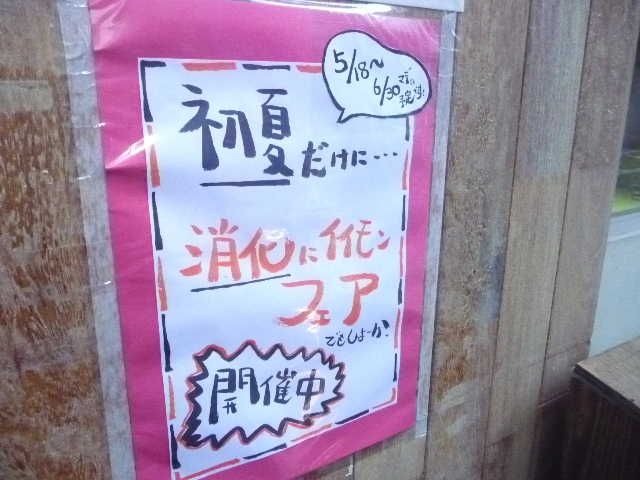 5/18〜
6/30まで
初夏だけに…
消化にイイモン
フェア
でもしょーか?
開催中